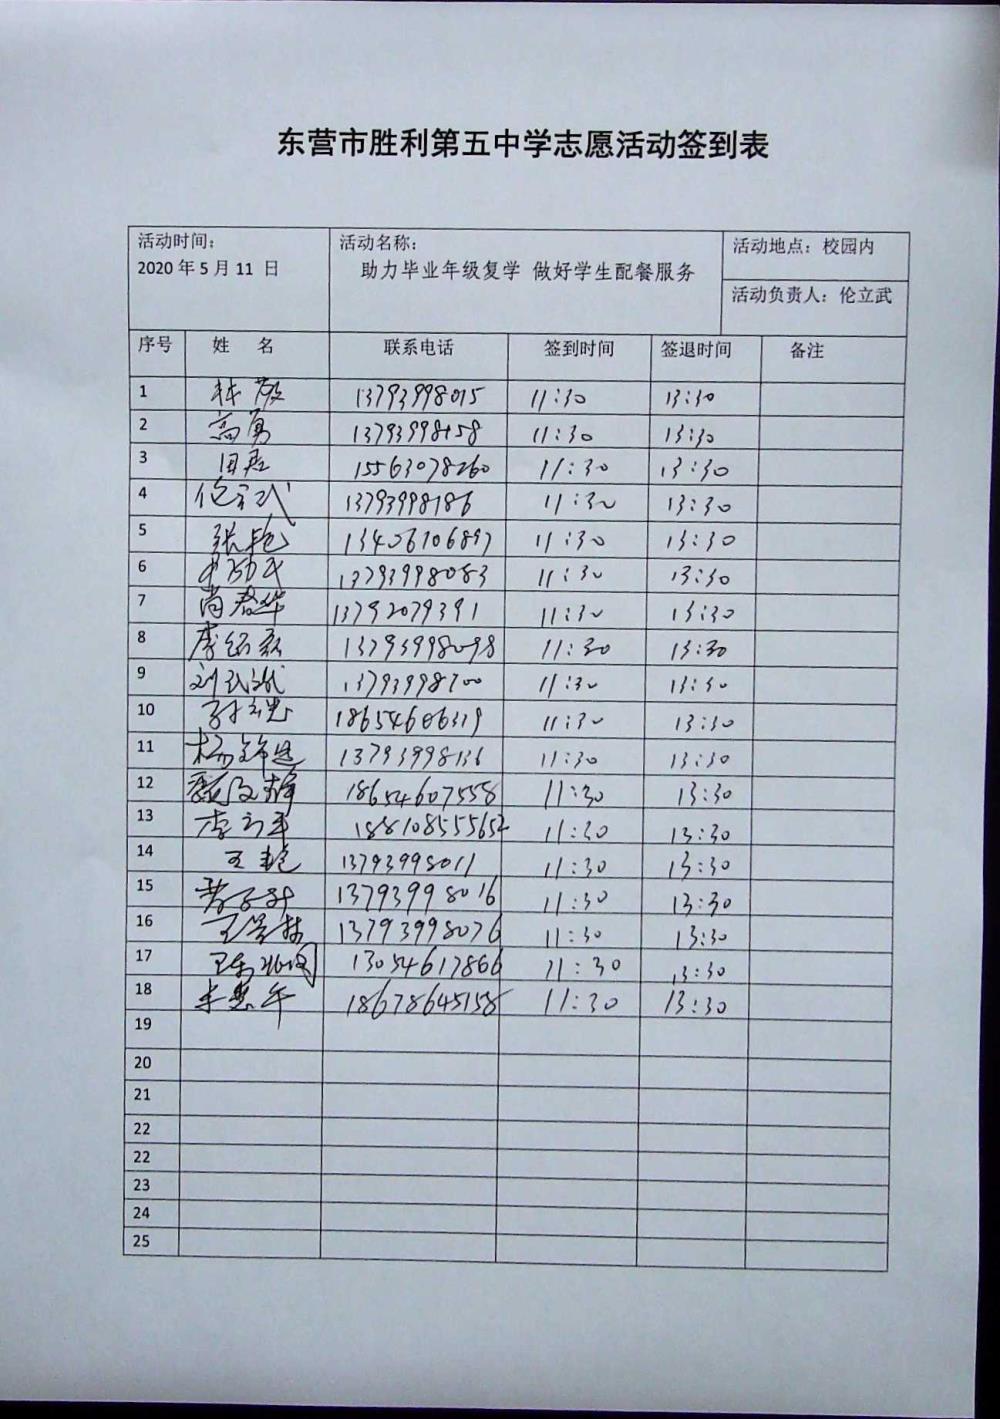 东营市胜利第五中学志愿活动签到表
活动时间：
2020年5月11 日
活动名称：
助力毕业年级复学 做好学生配餐服务
活动地点：校园内
活动负责人：伦立武
序号 姓 名 联系电话 签到时间 签退时间 备注
1 13793998015 11:30 13:30
2 高勇 13793998158 11:30 13:30
3 15563078260 11:30 13:30
4 伦立武 13793998186 11:30 13:30
5 张艳 13406106897 11:30 13:30
6 13793998083 11:30 13:30
7 尚春华 13792079391 11:30 13:30
8 13793998098 11:30 13:30
9 13793998700 11:30 13:30
10 18654606319 11:30 13:30
11 13793998136 11:30 13:30
12 18654607558 11:30 13:30
13 11:30 13:30
14 王艳 13793998011 11:30 13:30
15 13793998016 11:30 13:30
16 13793998076 11:30 13:30
17 13054617866 11:30 13:30
18 18678645158 11:30 13:30
19
20
21
22
22
23
24
25